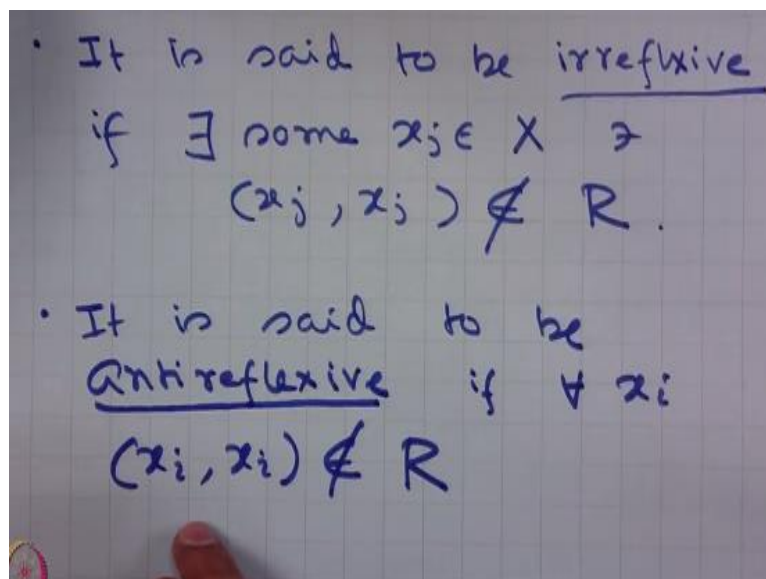 · It is said to be irreflxive
if ∃ some xⱼ ∈ X ∋
(xⱼ, xⱼ) ∉ R.
· It is said to be
antireflexive if ∀ xᵢ
(xᵢ, xᵢ) ∉ R